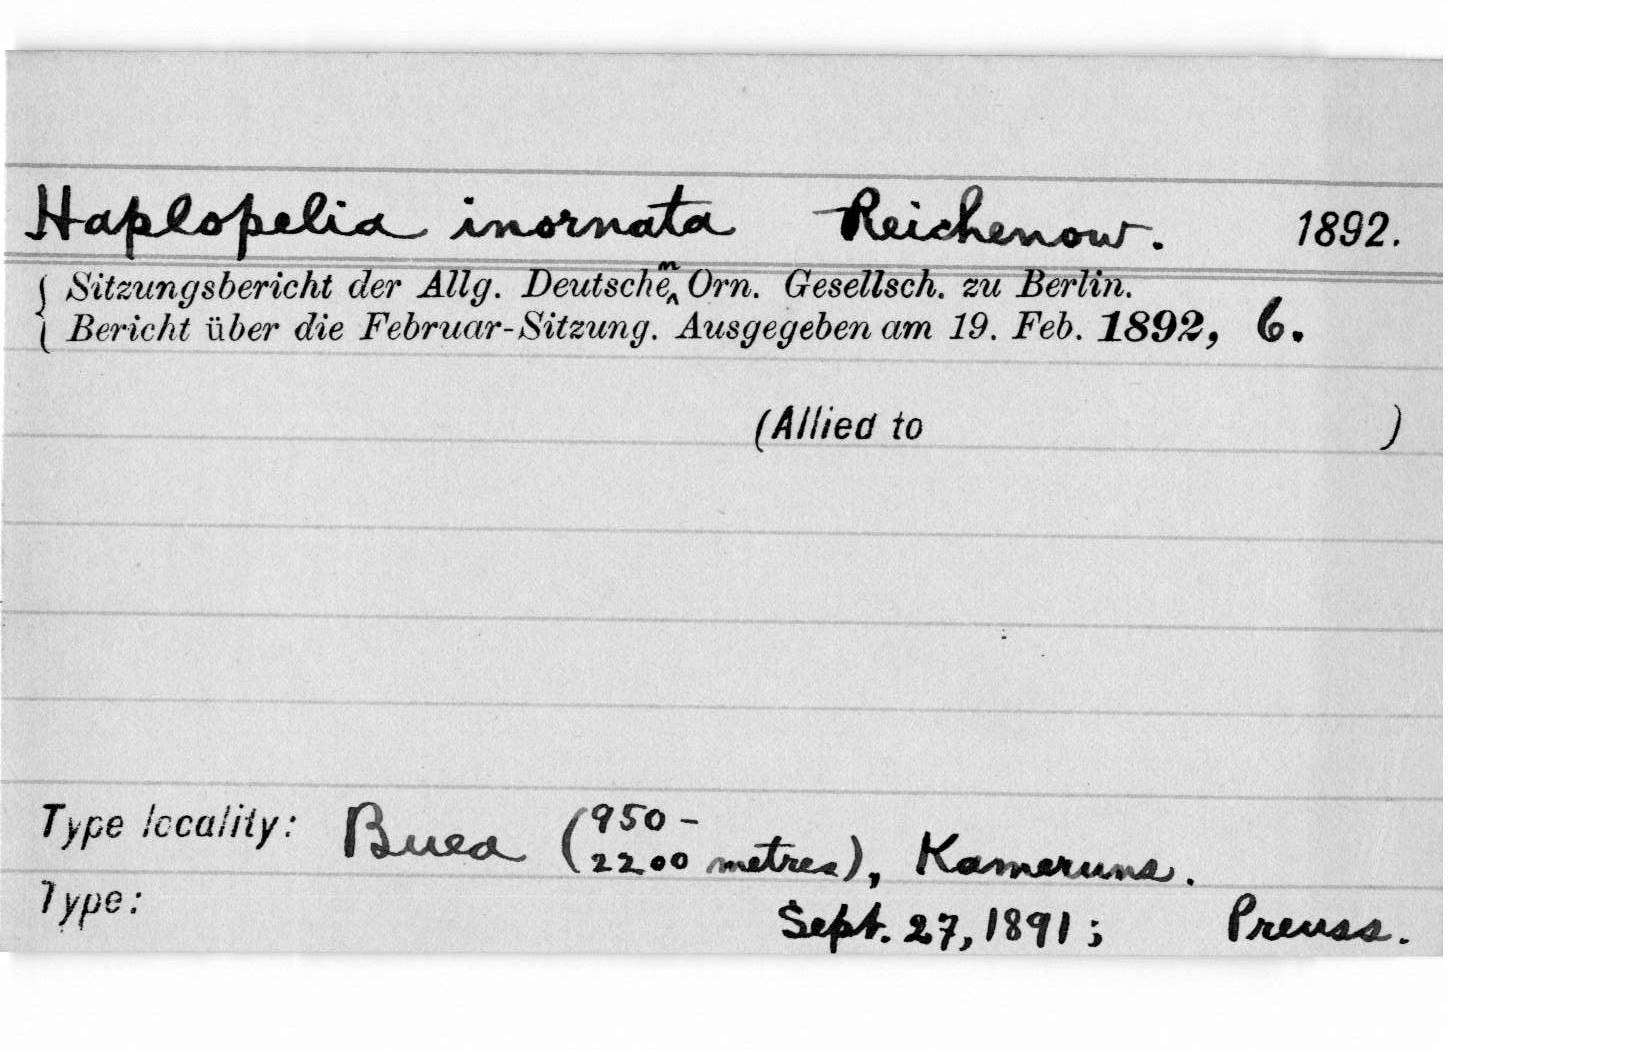 Haplopelia inornata Reichenow. 1892.
Sitzungsbericht der Allg. Deutschen Orn. Gesellsch. zu Berlin.
Bericht über die Februar-Sitzung. Ausgegeben am 19. Feb. 1892, 6.
(Allied to )
Type locality: Buea (950 - 2200 metres), Kameruns.
Type: Sept. 27, 1891; Preuss.